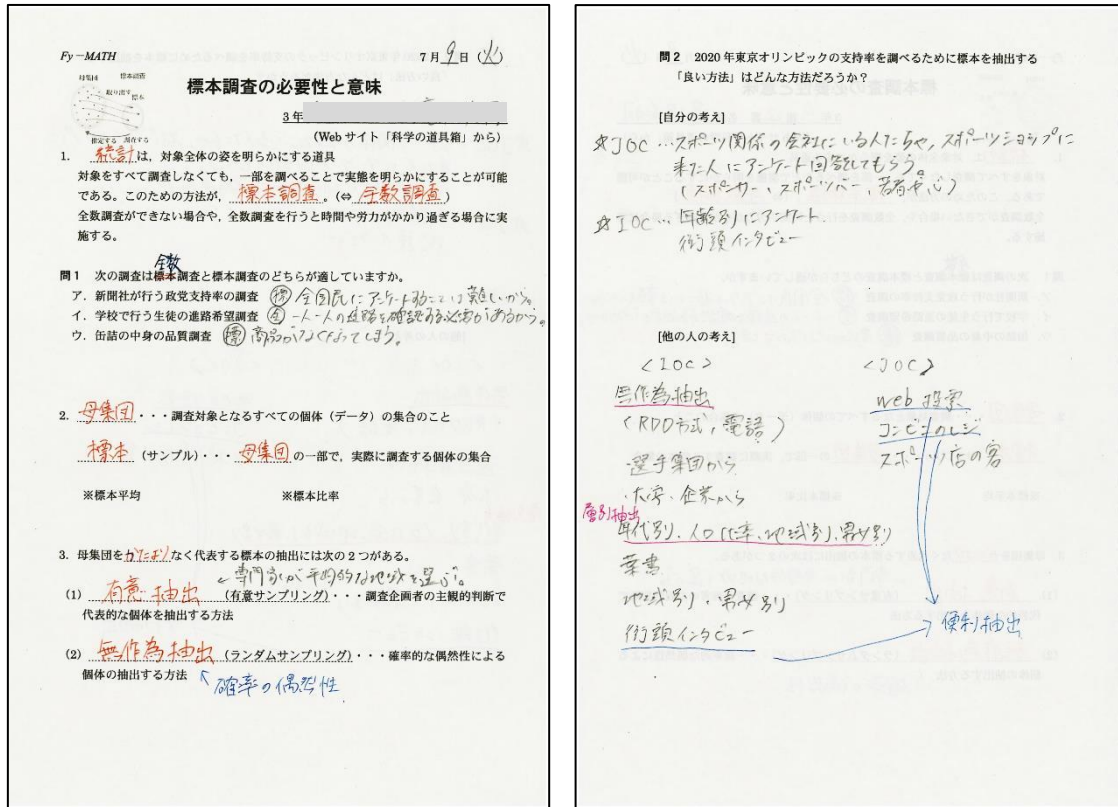 Fy－MATH
7月9日（火）
母集団 標本調査
取り出す 標本
推定する 調査する
標本調査の必要性と意味
3年
(Webサイト「科学の道具箱」から)
1. 統計は，対象全体の姿を明らかにする道具
対象をすべて調査しなくても，一部を調べることで実態を明らかにすることが可
能である。このための方法が，標本調査。(⇔ 全数調査)
全数調査ができない場合や，全数調査を行うと時間や労力がかかり過ぎる場合に実
施する。
全数
問1 次の調査は標本調査と標本調査のどちらが適していますか。
ア．新聞社が行う政党支持率の調査 標 全国民にアンケートすることは難しいから。
イ．学校で行う生徒の進路希望調査 全 一人一人の進路を確認する必要があるから。
ウ．缶詰の中身の品質調査 標 商品がなくなってしまう。
2. 母集団・・・調査対象となるすべての個体（データ）の集合のこと
標本（サンプル）・・・母集団の一部で，実際に調査する個体の集合
※標本平均 ※標本比率
3. 母集団をかたよりなく代表する標本の抽出には次の2つがある。
←専門家が平均的な地域を選ぶ。
(1) 有意抽出（有意サンプリング）・・・調査企画者の主観的判断で
代表的な個体を抽出する方法
(2) 無作為抽出（ランダムサンプリング）・・・確率的な偶然性による
個体の抽出する方法
確率の偶然性
問2 2020年東京オリンピックの支持率を調べるために標本を抽出する
「良い方法」はどんな方法だろうか？
[自分の考え]
☆JOC…スポーツ関係の会社にいる人たちや，スポーツショップに
来た人にアンケート回答をしてもらう。
(スポンサー，スポーツバー，若者中心)
☆IOC…年齢別にアンケート.
街頭インタビュー
[他の人の考え]
<IOC> <JOC>
無作為抽出 web投票
(RDD方式，電話) コンビニのレジ
選手集団から スポーツ店の客
・大学・企業から
層別抽出
年代別，人口比率，地域別，男女別
葉書
地域別，男女別
街頭インタビュー
便利抽出